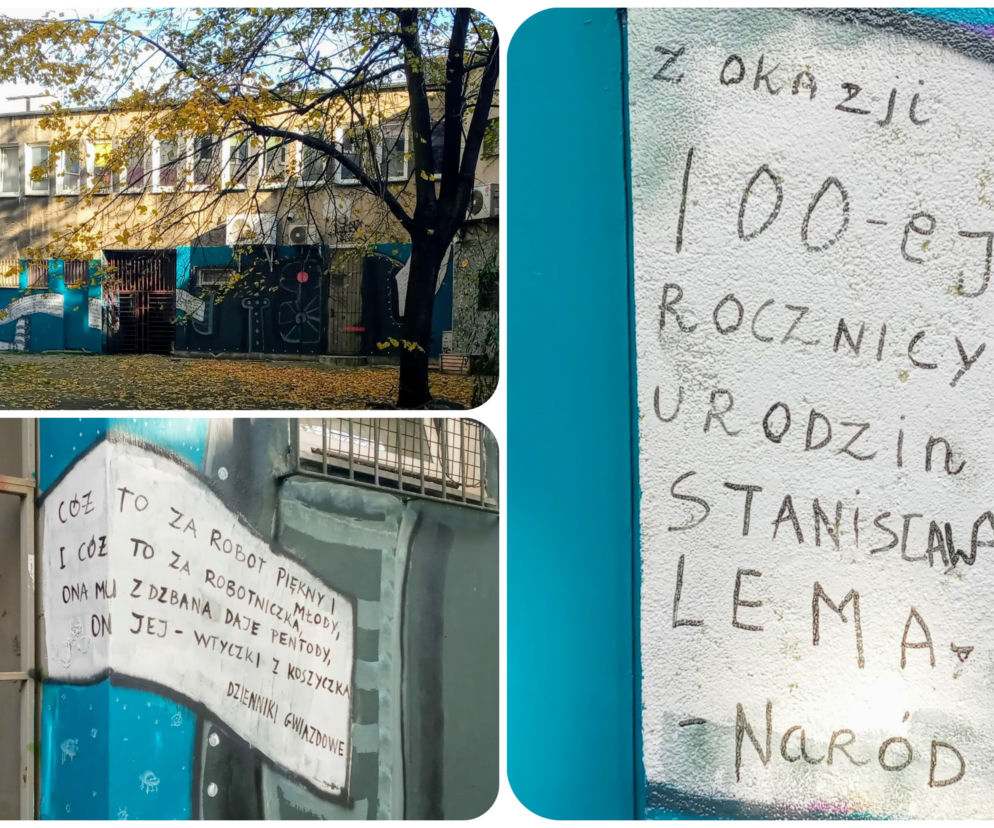 CÓŻ TO ZA ROBOT PIĘKNY I
I CÓŻ TO ZA ROBOTNICZKA MŁODY,
ONA MU Z DZBANA DAJE PENTODY,
ON JEJ - WTYCZKI Z KOSZYCZKA
DZIENNIKI GWIAZDOWE
Z OKAZJI
100-ej
ROCZNICY
URODZin
STANISŁAWA
LEMA-
-NaRÓD